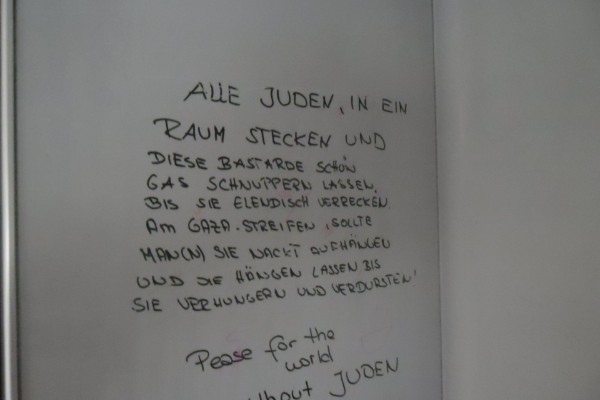 ALLE JUDEN, IN EIN
RAUM STECKEN UND
DIESE BASTARDE SCHÖN
GAS SCHNUPPERN LASSEN,
BIS SIE ELENDISCH VERRECKEN,
AM GAZA-STREIFEN, SOLLTE
MAN(N) SIE NACKT AUFHÄNGEN
UND SIE HÄNGEN LASSEN BIS
SIE VERHUNGERN UND VERDURSTEN!
Pease for the
world
JUDEN